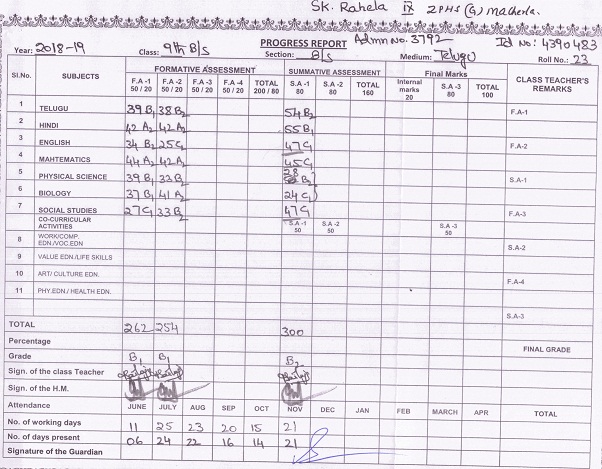 SK. Rahela IX ZPHS (G) macherla.
PROGRESS REPORT Admn No. 3792 Id No: 4390483
Year: 2018-19 Class: 9th B/s Section: B/s Medium: Telugu Roll No.: 23
Sl.No. SUBJECTS FORMATIVE ASSESSMENT SUMMATIVE ASSESSMENT Final Marks CLASS TEACHER'S REMARKS
F.A -1 50 / 20 F.A -2 50 / 20 F.A -3 50 / 20 F.A -4 50 / 20 TOTAL 200 / 80 S.A -1 80 S.A -2 80 TOTAL 160 Internal marks 20 S.A -3 80 TOTAL 100
1 TELUGU 39 B1 38 B2 54 B2 F.A-1
2 HINDI 42 A2 42 A2 55 B1
3 ENGLISH 34 B2 25 C1 47 C1 F.A-2
4 MAHTEMATICS 44 A2 42 A2 45 C1
5 PHYSICAL SCIENCE 39 B1 33 B2 28 B2 S.A-1
6 BIOLOGY 37 B1 41 A2 24 C1
7 SOCIAL STUDIES 27 C1 33 B2 47 C1 F.A-3
CO-CURRICULAR ACTIVITIES S.A -1 50 S.A -2 50 S.A -3 50
8 WORK/COMP. EDN./VOC.EDN S.A-2
9 VALUE EDN./LIFE SKILLS
10 ART/ CULTURE EDN. F.A-4
11 PHY.EDN / HEALTH EDN.
S.A-3
TOTAL 262 254 300
Percentage FINAL GRADE
Grade B1 B1 B2
Sign. of the class Teacher
Sign. of the H.M.
Attendance JUNE JULY AUG SEP OCT NOV DEC JAN FEB MARCH APR TOTAL
No. of working days 11 25 23 20 15 21
No. of days present 06 24 22 16 14 21
Signature of the Guardian